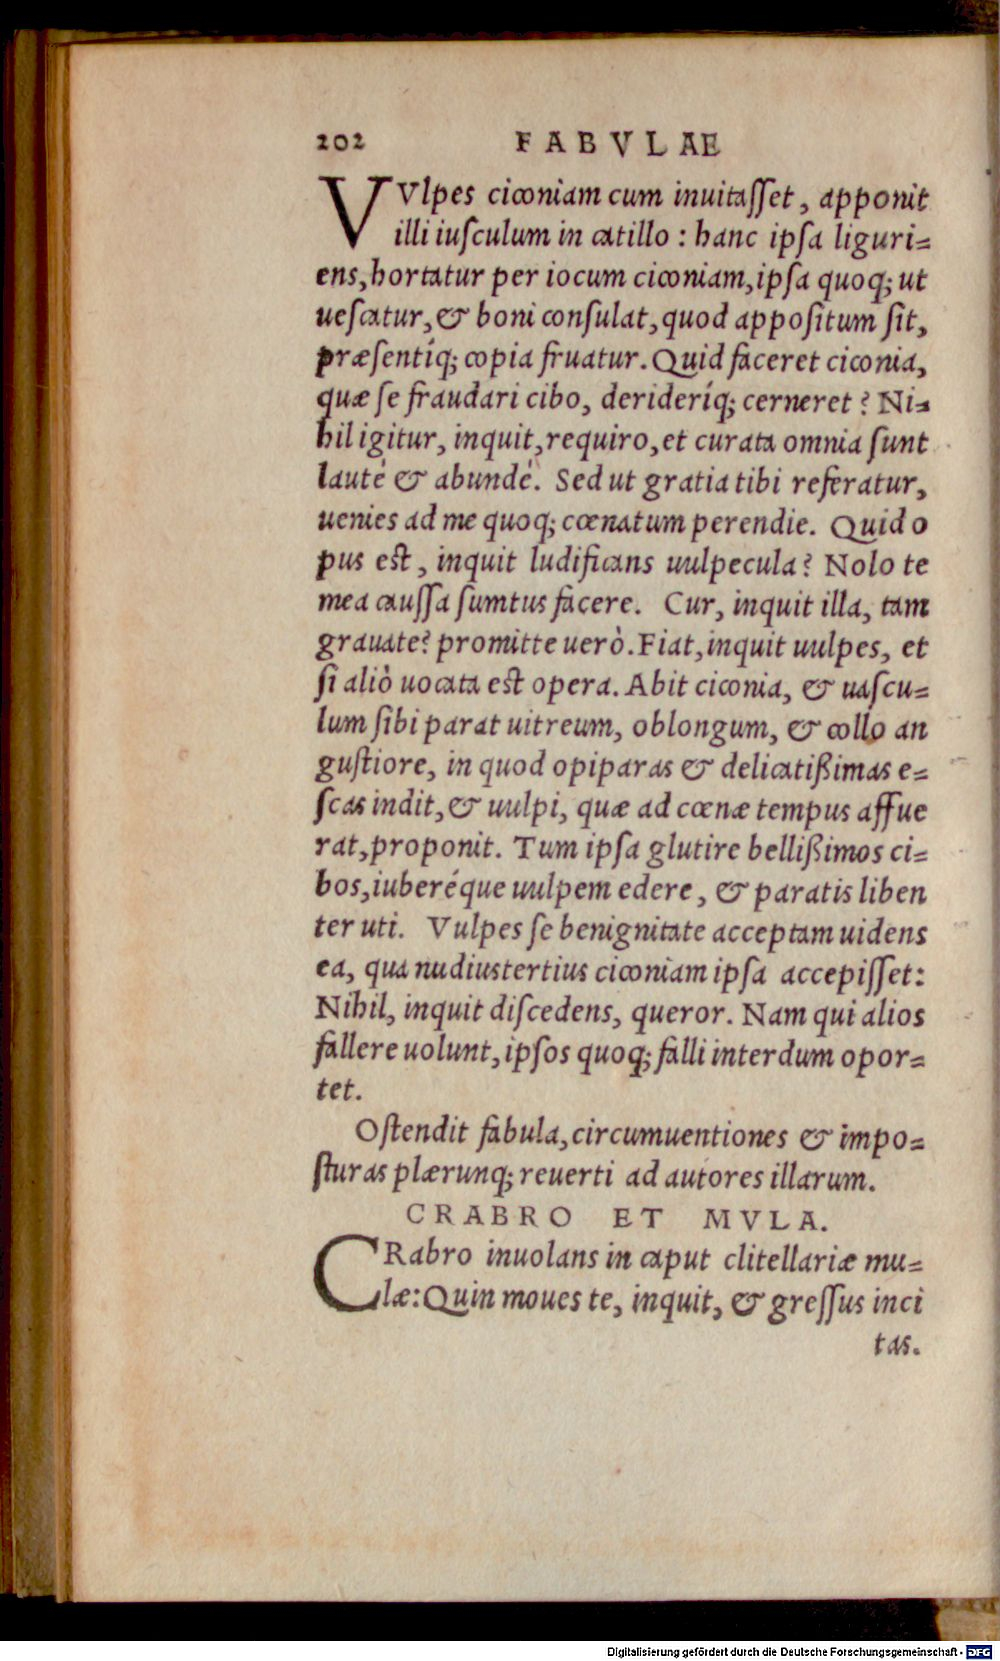 202 FABVLAE
VVlpes ciconiam cum inuitaſſet, apponit
illi iuſculum in catillo: hanc ipſa liguri=
ens, hortatur per iocum ciconiam, ipſa quoq; ut
ueſcatur, & boni conſulat, quod appoſitum ſit,
præſentíq; copia fruatur. Quid faceret ciconia,
quæ ſe fraudari cibo, derideríq; cerneret? Ni=
hil igitur, inquit, requiro, et curata omnia ſunt
lautè & abundè. Sed ut gratia tibi referatur,
uenies ad me quoq; cœnatum perendie. Quid o
pus eſt, inquit ludificans uulpecula? Nolo te
mea cauſſa ſumtus facere. Cur, inquit illa, tam
grauate? promitte uerò. Fiat, inquit uulpes, et
ſi aliò uocata eſt opera. Abit ciconia, & uaſcu=
lum ſibi parat uitreum, oblongum, & collo an
guſtiore, in quod opiparas & delicatißimas e=
ſcas indit, & uulpi, quæ ad cœnæ tempus affue
rat, proponit. Tum ipſa glutire bellißimos ci=
bos, iuberéque uulpem edere, & paratis liben
ter uti. Vulpes ſe benignitate acceptam uidens
ea, qua nudiustertius ciconiam ipſa accepiſſet:
Nihil, inquit diſcedens, queror. Nam qui alios
fallere uolunt, ipſos quoq; falli interdum opor=
tet.
Oſtendit fabula, circumuentiones & impo=
ſturas plærunq; reuerti ad autores illarum.
CRABRO ET MVLA.
CRabro inuolans in caput clitellariæ mu=
læ: Quin moues te, inquit, & greſſus inci
tas.
Digitalisierung gefördert durch die Deutsche Forschungsgemeinschaft - DFG